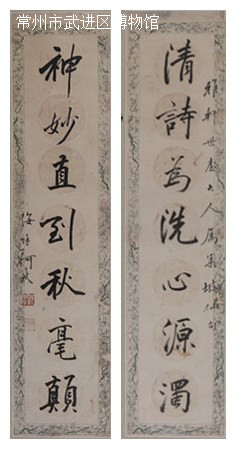 常州市武进区博物馆
清詩為洗心源濁
大人屬集
神妙直到秋毫顛